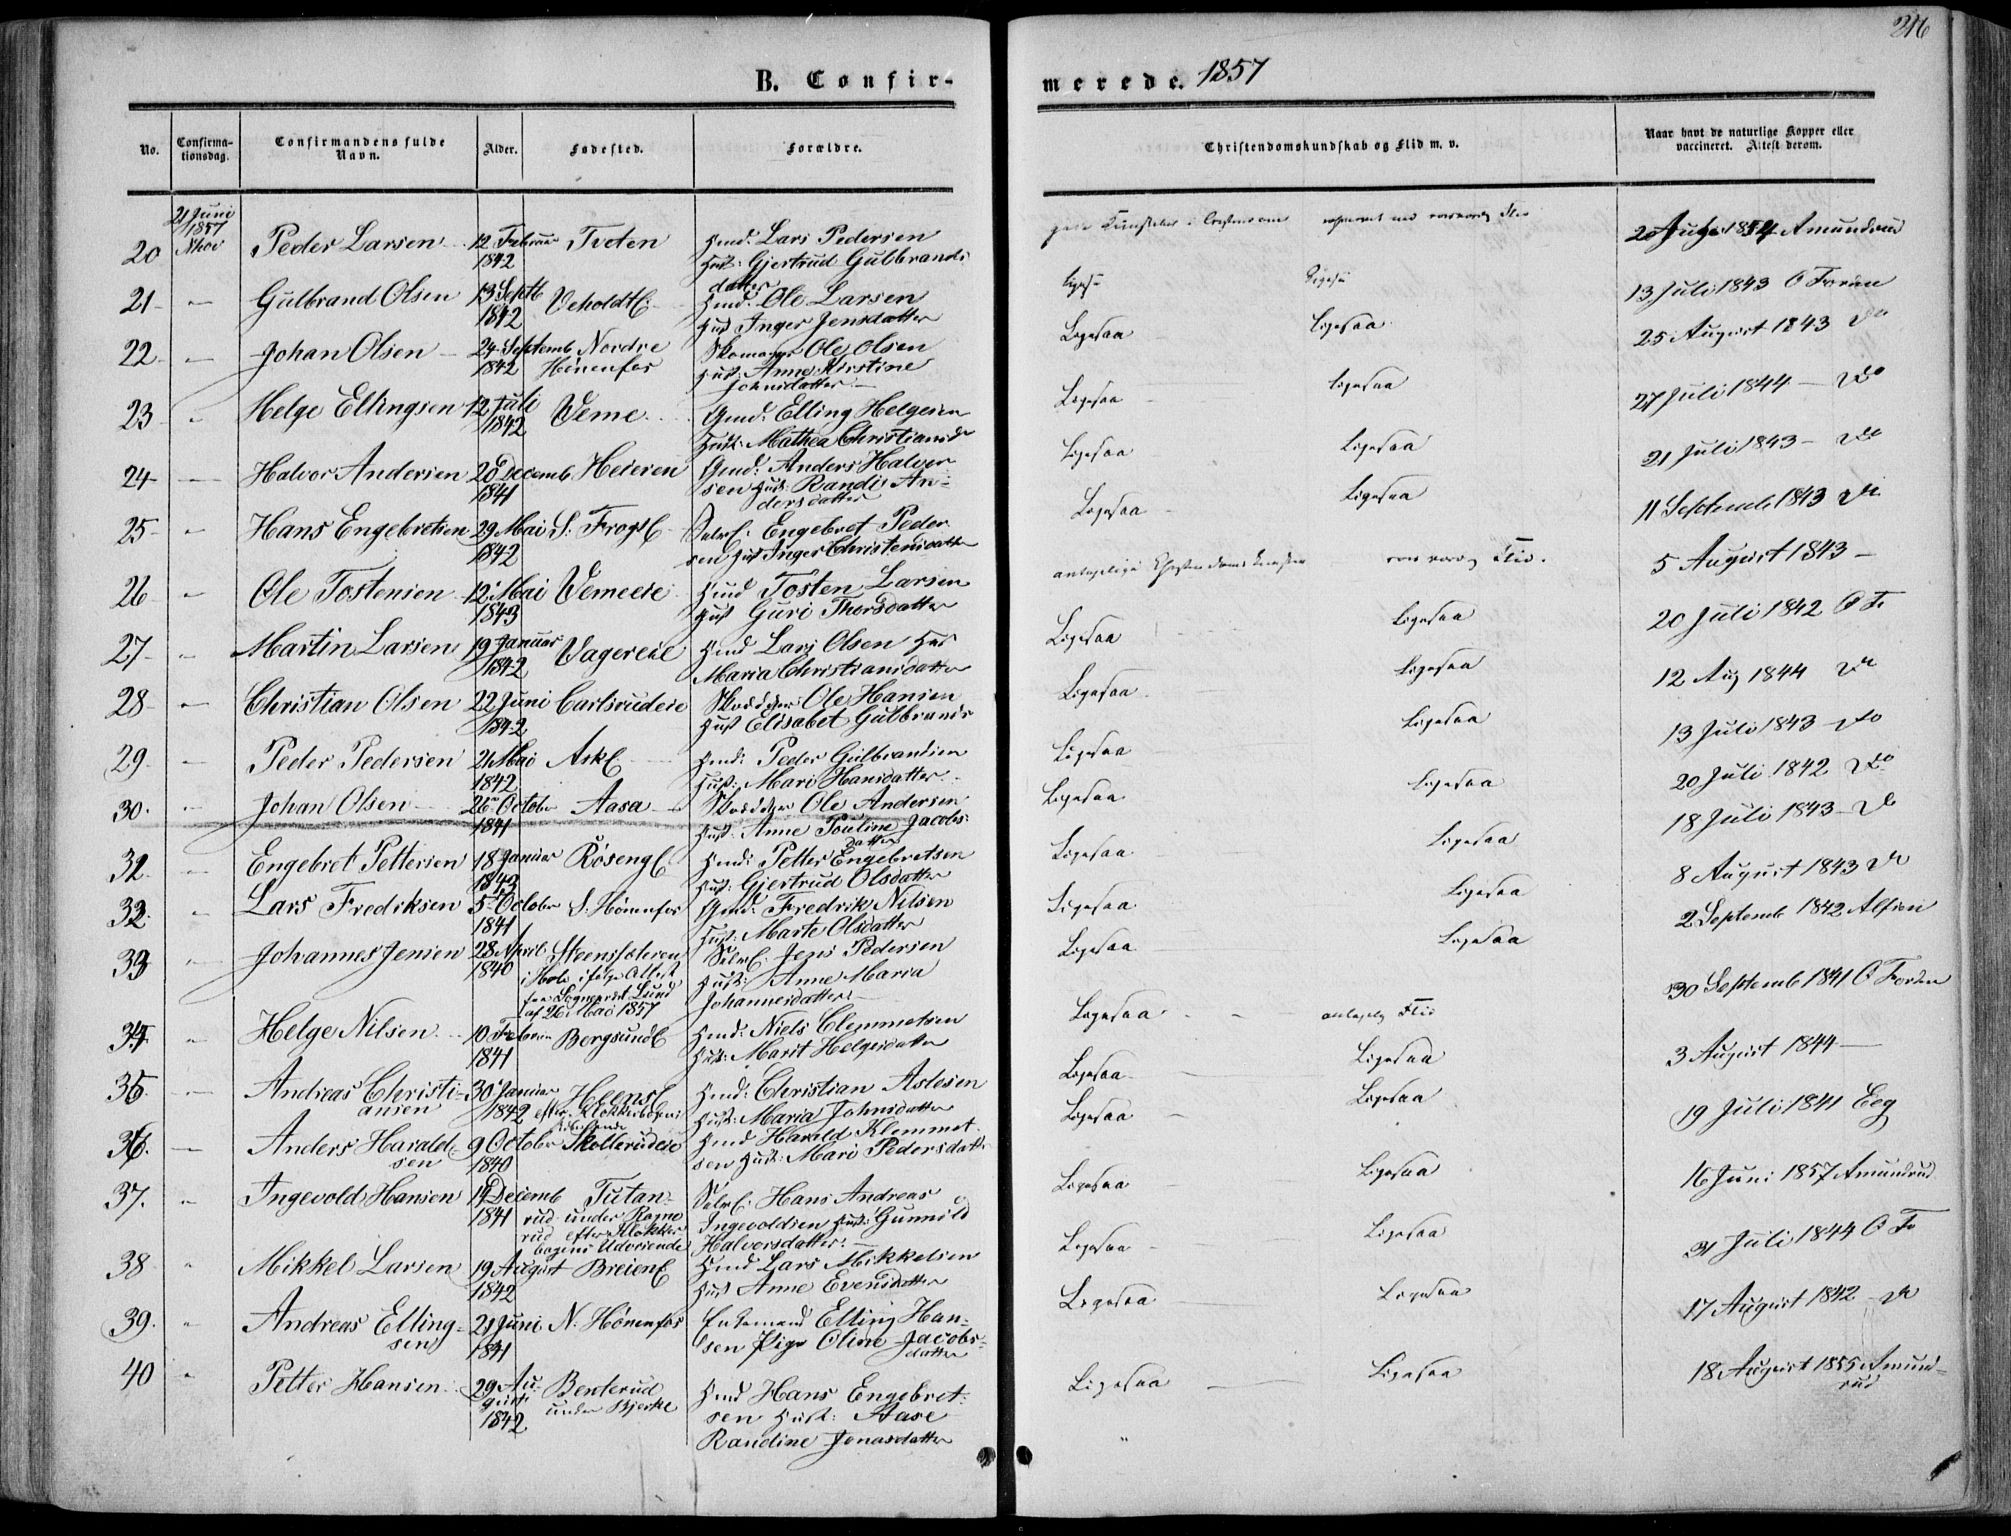 246
B. Confir-
merede. 1857
No.
Confirma-
tionsdag.
Confirmandens fulde
Navn.
Alder.
Fødested.
Forældre.
Christendomskundskab og Flid m. v.
Naar havt de naturlige Kopper eller
vaccineret. Attest derom.
21 Juni
1857
20 Peder Larsen 12 Februar 1842 Tveten
Hmd: Lars Pedersen
Hust: Gjertrud Gulbrands
datter
Amundrud
21 " Gulbrand Olsen 13 Septb 1842 Veholdt
Hmd: Ole Larsen
Hust Inger Jensdatter
Ligesaa Ligesaa 13 Juli 1843 O Forden
22 " Johan Olsen 24 Septemb 1842 Nordre Hönenfos
Skomager Ole Olsen
Hust: Anne Kirstine
Johnsdatter
Ligesaa Ligesaa 25 August 1843 Do
23 " Helge Ellingsen 12 Juli 1842 Veme
Gmd: Elling Helgesen
Hust: Mathea Christiansdr
Ligesaa Ligesaa 27 Juli 1844 Do
24 " Halvor Andersen 20 Decemb 1841 Heieren
Gmd: Anders Halvor
sen Hust: Randi An-
dersdatter
Ligesaa Ligesaa 21 Juli 1843 Do
25 " Hans Engebretsen 29 Mai 1842 S. Frogs
Engebret Peder
sen Hust Inger Christensdatter
Ligesaa Ligesaa 11 Septemb 1843 Do
26 " Ole Tostensen 12 Mai 1843 Vemeeie
Hmd Tosten Larsen
Hust Guri Thorsdatter
Flid. 5 August 1843
27 " Martin Larsen 19 Januar 1842 Vagereie
Hmd Lars Olsen Hus
Maria Christiansdatter
Ligesaa Ligesaa 20 Juli 1842 O F
28 " Christian Olsen 22 Juni 1842 Carlsrudeie
Ole Hansen
Hust Elisabet Gulbrandsr
Ligesaa Ligesaa 12 Aug 1844 Do
29 " Peder Pedersen 21 Mai 1842 Ask
Hmd: Peder Gulbrandsen
Hust: Mari Hansdatter
Ligesaa Ligesaa 13 Juli 1843 Do
30. " Johan Olsen 26 October 1841 Aasa
Ole Andersen
Hust: Anne Pouline Jacobs-
datter
Ligesaa Ligesaa 20 Juli 1842 Do
31. " Engebret Pettersen 18 Januar 1843 Røseng
Hmd: Petter Engebretsen
Hust: Gjertrud Olsdatter
Ligesaa Ligesaa 18 Juli 1843 Do
32. " Lars Fredriksen 5 October 1841 S. Hönenfos
Gmd: Fredrik Nilsen
Hust: Marte Olsdatter
Ligesaa Ligesaa 8 August 1843 Do
33 " Johannes Jensen 28 April 1840
i Hole ifølge Attest
fra Sognepræst Lund
af 26 Mai 1857
Jens Pedersen
Hust: Anne Maria
Johannesdatter
Ligesaa Ligesaa 2 Septemb 1842
34 " Helge Nilsen 10 Februar 1841 Bergsund
Hmd: Niels Clemmetsen
Hust: Marit Helgesdatter
Ligesaa Flid 30 Septemb 1841 O Forden
35. " Andreas Christi-
ansen 30 Januar 1842 Heens
efter Klokkerbogens
Hmd: Christian Aslesen
Hust: Maria Johnsdatter
Ligesaa Ligesaa 3 August 1844
36. " Anders Harald-
sen 9 October 1840 Skollerudeie
Hmd Harald Klemmet
sen Hust: Mari Pedersdatter
Ligesaa Ligesaa 19 Juli 1841 Eeg
37. " Ingevold Hansen 14 Decemb 1841 Tutan-
rud under Ragne
rud efter Klokker
bogens Udvisende
Hans Andreas
Ingevoldsen Hust: Gunnild
Halvorsdatter
Ligesaa Ligesaa 16 Juni 1857 Amundrud
38 " Mikkel Larsen 19 August 1842 Breien
Hmd Lars Mikkelsen
Hust Anne Evensdatter
Ligesaa Ligesaa 31 Juli 1844 O F
39. " Andreas Elling-
sen 21 Juni 1841 N. Hönenfos
Enkemand Elling Han-
sen Pige Oline Jacobs-
datter
Ligesaa Ligesaa 17 August 1842 Do
40 " Petter Hansen 29 Au-
gust 1842 Benterud
under Bjerke
Hmd Hans Engebret-
sen Hust: Aase
Randine Jonasdatter
Ligesaa Ligesaa 18 August 1855 Amund-
rud